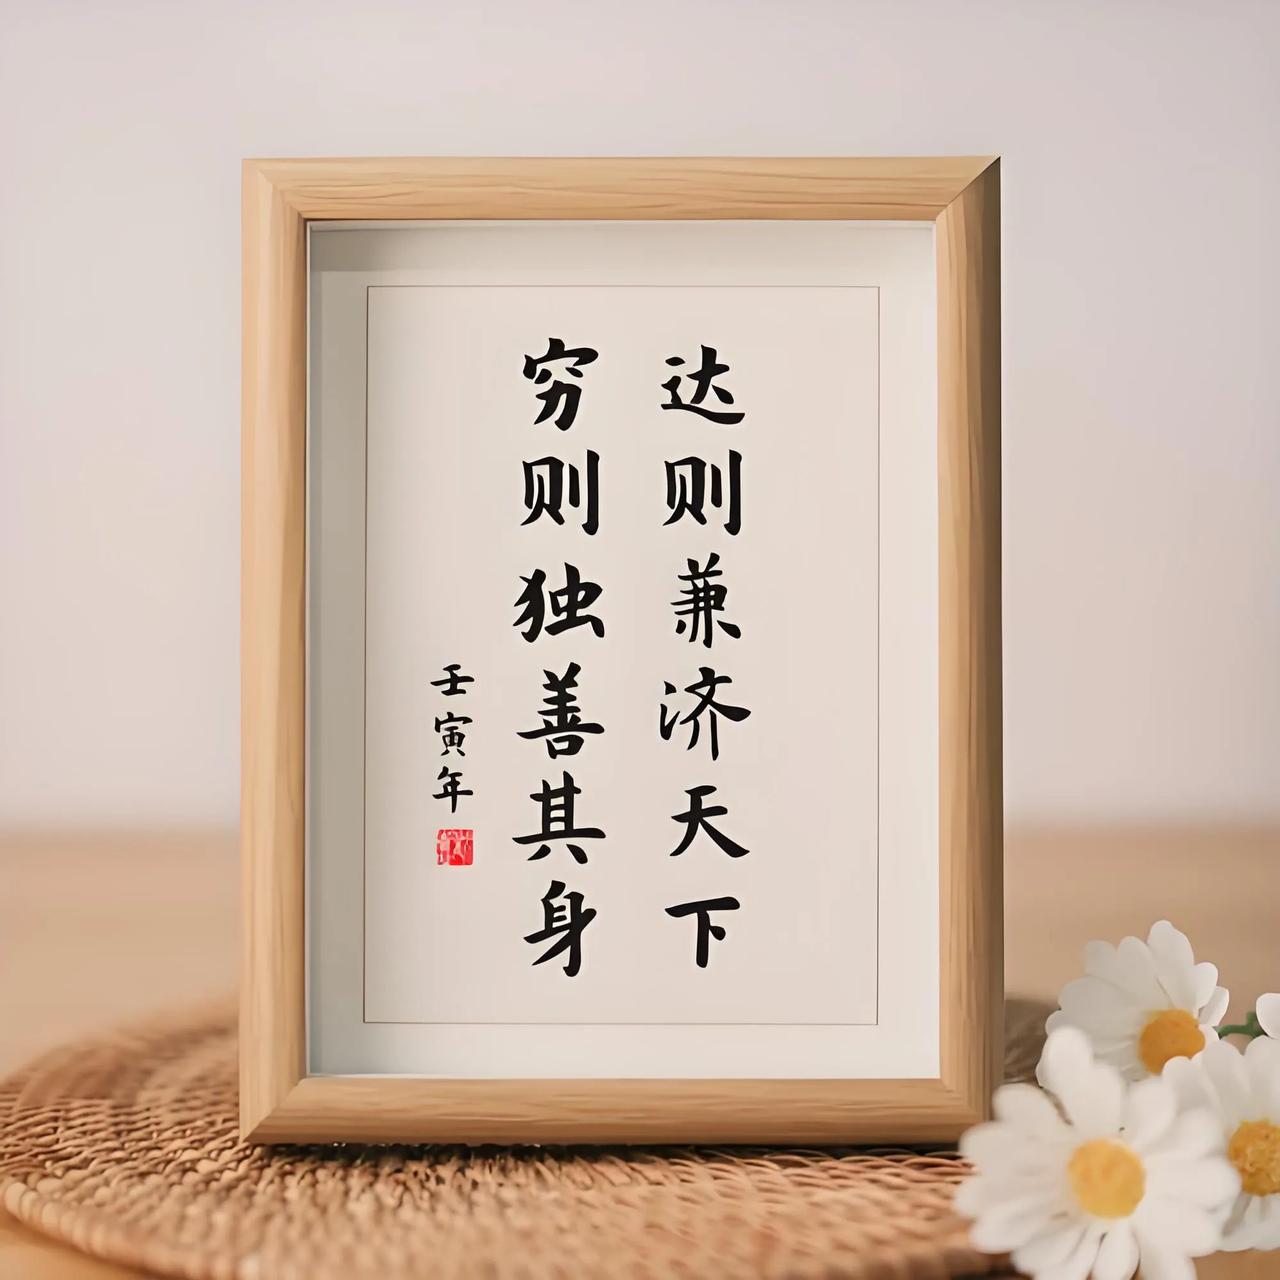 达则兼济天下
穷则独善其身
壬寅年